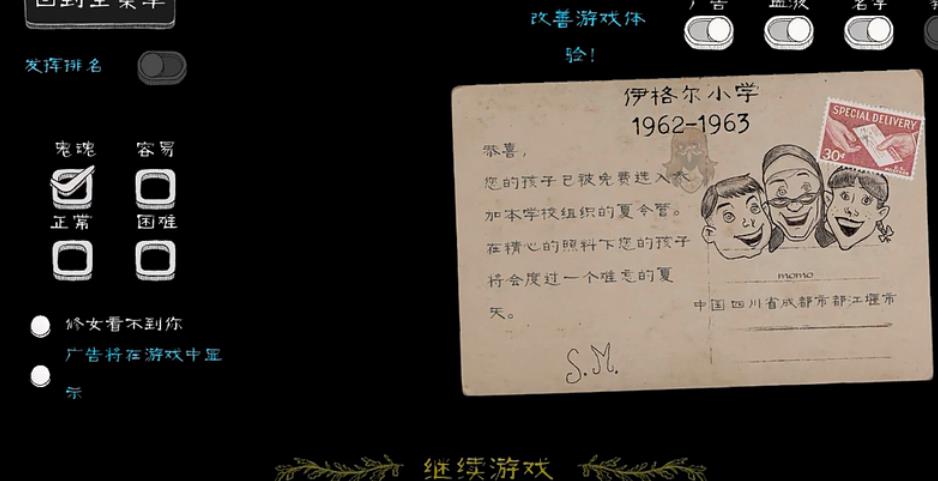 回到主菜单
发挥排名
鬼魂 容易
正常 困难
修女看不到你
广告将在游戏中显
示
改善游戏体
验!
广告 血液 名字
伊格尔小学
1962-1963
恭喜,
您的孩子已被免费选入参
加本学校组织的夏令营。
在精心的照料下您的孩子
将会度过一个难忘的夏
天。
S.M.
SPECIAL DELIVERY
30¢
momo
中国四川省成都市都江堰市
继续游戏